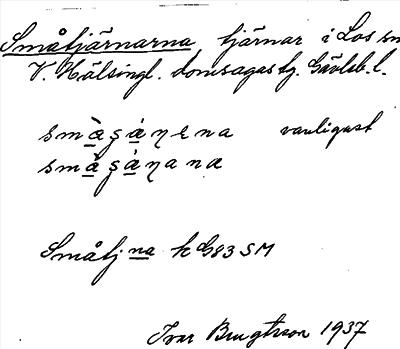 Småtjärnarna, tjärnar i Los sn
V. Hälsingl. domsagas tg. Gävleb. l.
små̀şá̱ɳena vanligast
små̀şá̱ɳana
Småtjna k G83 SM
Ivar Bengtsson 1937